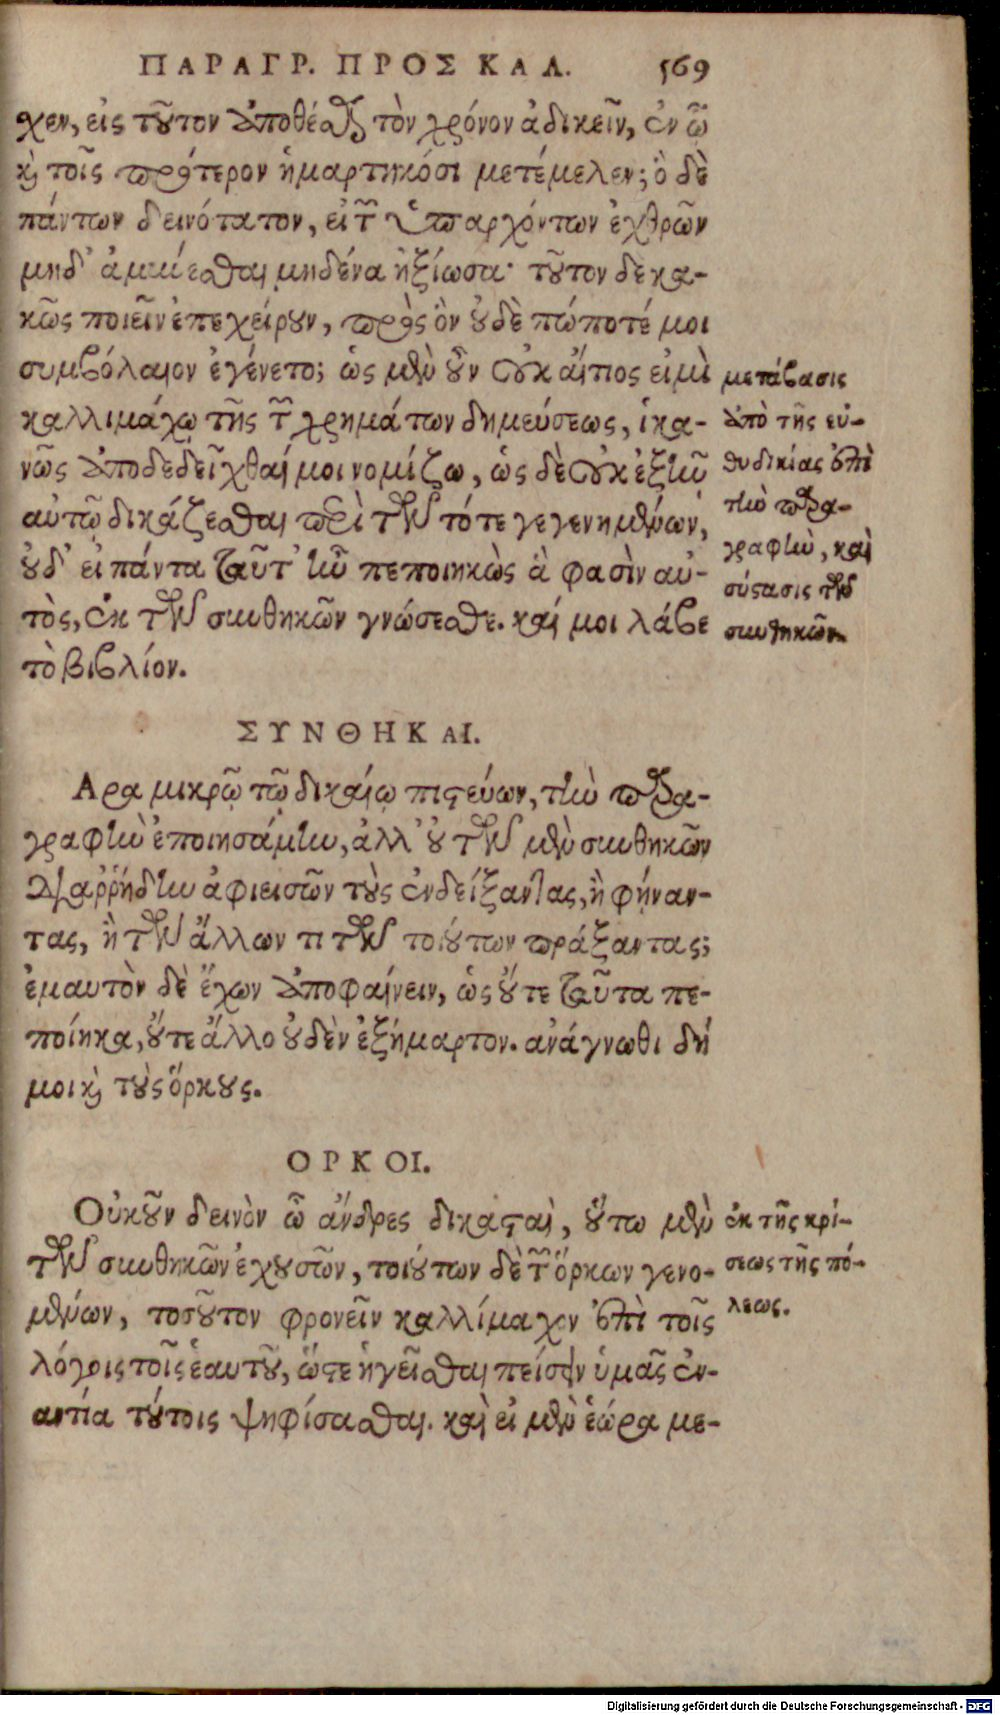 ΠΑΡΑΓΡ. ΠΡΟΣ ΚΑΛ. 569
χεν, εἰς τοῦτον ἀποθέσθαι τὸν χρόνον ἀδικεῖν, ἐν ᾧ
καὶ τοῖς πρότερον ἡμαρτηκόσι μετέμελεν; ὃ δὲ
πάντων δεινότατον, εἰ τῶν ὑπαρχόντων ἐχθρῶν
μηδ' ἀμύνεσθαι μηδένα ἠξίωσα· τοῦτον δὲ κα-
κῶς ποιεῖν ἐπεχείρουν, πρὸς ὃν οὐδὲ πώποτέ μοι
συμβόλαιον ἐγένετο; ὡς μὲν οὖν οὐκ αἴτιος εἰμὶ
καλλιμάχῳ τῆς τῶν χρημάτων δημεύσεως, ἱκα-
νῶς ἀποδεδεῖχθαί μοι νομίζω, ὡς δὲ οὐκ ἐξῆν
αὐτῷ δικάζεσθαι περὶ τῶν τότε γεγενημένων,
οὐδ' εἰ πάντα ταῦτ' ἦν πεποιηκὼς ἅ φασὶν αὐ-
τὸς, ἐκ τῶν συνθηκῶν γνώσεσθε. καί μοι λάβε
τὸ βιβλίον.
μετάβασις
ἀπὸ τῆς εὐ-
θυδικίας ἐπὶ
τὴν παρα-
γραφὴν, καὶ
σύστασις τῶν
συνθηκῶν.
ΣΥΝΘΗΚΑΙ.
Αρα μικρῷ τῷ δικαίῳ πιστεύων, τὴν παρα-
γραφὴν ἐποιησάμην, ἀλλ' οὐ τῶν μὲν συνθηκῶν
διαῤῥήδην ἀφιεισῶν τοὺς ἐνδείξαντας, ἢ φήναν-
τας, ἢ τῶν ἄλλων τι τῶν τοιούτων πράξαντας;
ἐμαυτὸν δὲ ἔχων ἀποφαίνειν, ὡς οὔτε ταῦτα πε-
ποίηκα, οὔτε ἄλλο οὐδὲν ἐξήμαρτον. ἀνάγνωθι δή
μοι καὶ τοὺς ὅρκους.
ΟΡΚΟΙ.
Οὐκοῦν δεινὸν ὦ ἄνδρες δικασταὶ, οὕτω μὲν
τῶν συνθηκῶν ἐχουσῶν, τοιούτων δὲ τῶν ὅρκων γενο-
μένων, τοσοῦτον φρονεῖν καλλίμαχον ἐπὶ τοῖς
λόγοις τοῖς ἑαυτοῦ, ὥστε ἡγεῖσθαι πείσειν ὑμᾶς ἐν-
αντία τούτοις ψηφίσασθαι. καὶ εἰ μὲν ἑώρα με-
ἐκ τῆς κρί-
σεως τῆς πό-
λεως.
Digitalisierung gefördert durch die Deutsche Forschungsgemeinschaft - DFG